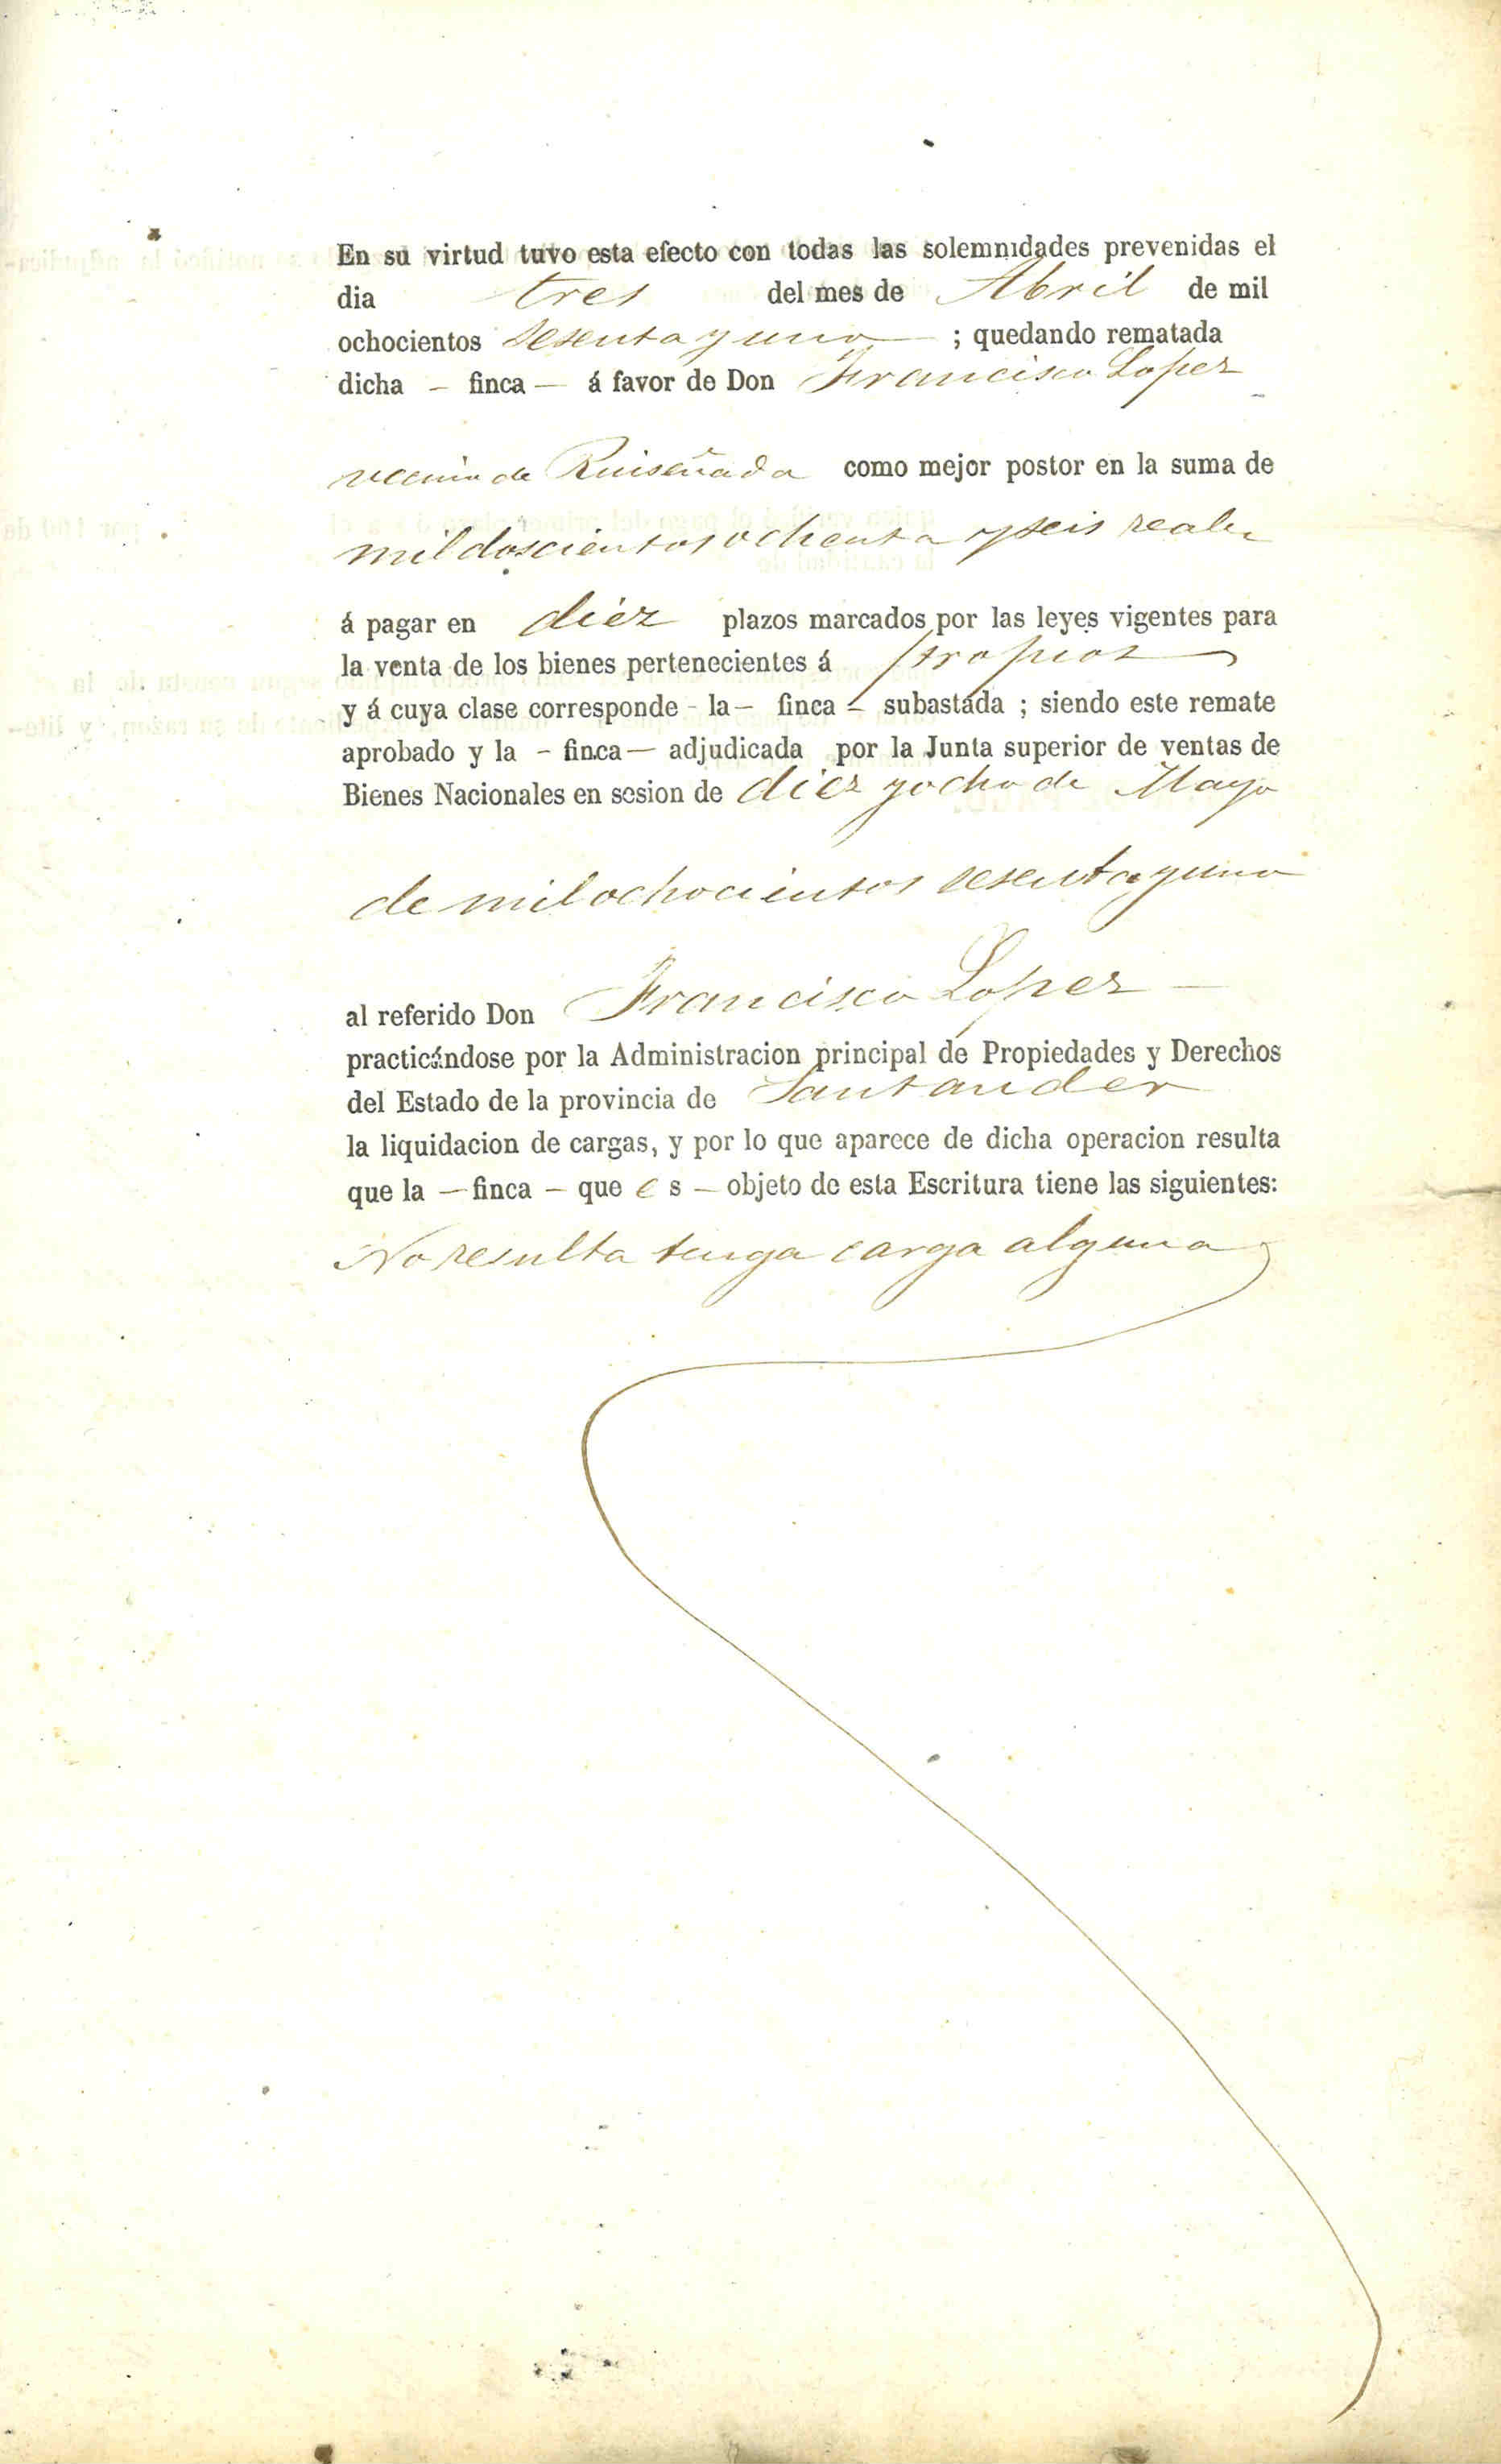 En su virtud tuvo esta efecto con todas las solemnidades prevenidas el
dia tres del mes de Abril de mil
ochocientos sesenta y uno ; quedando rematada
dicha - finca — á favor de Don Francisco Lopez
vecino de Ruiseñada como mejor postor en la suma de
mil doscientos ochenta y seis reales
á pagar en diez plazos marcados por las leyes vigentes para
la venta de los bienes pertenecientes á propios
y á cuya clase corresponde - la — finca - subastada ; siendo este remate
aprobado y la - finca — adjudicada por la Junta superior de ventas de
Bienes Nacionales en sesion de diez y ocho de Mayo
de mil ochocientos sesenta y uno
al referido Don Francisco Lopez —
practicándose por la Administracion principal de Propiedades y Derechos
del Estado de la provincia de Santander
la liquidacion de cargas, y por lo que aparece de dicha operacion resulta
que la — finca — que es — objeto de esta Escritura tiene las siguientes:
No resulta tenga carga alguna